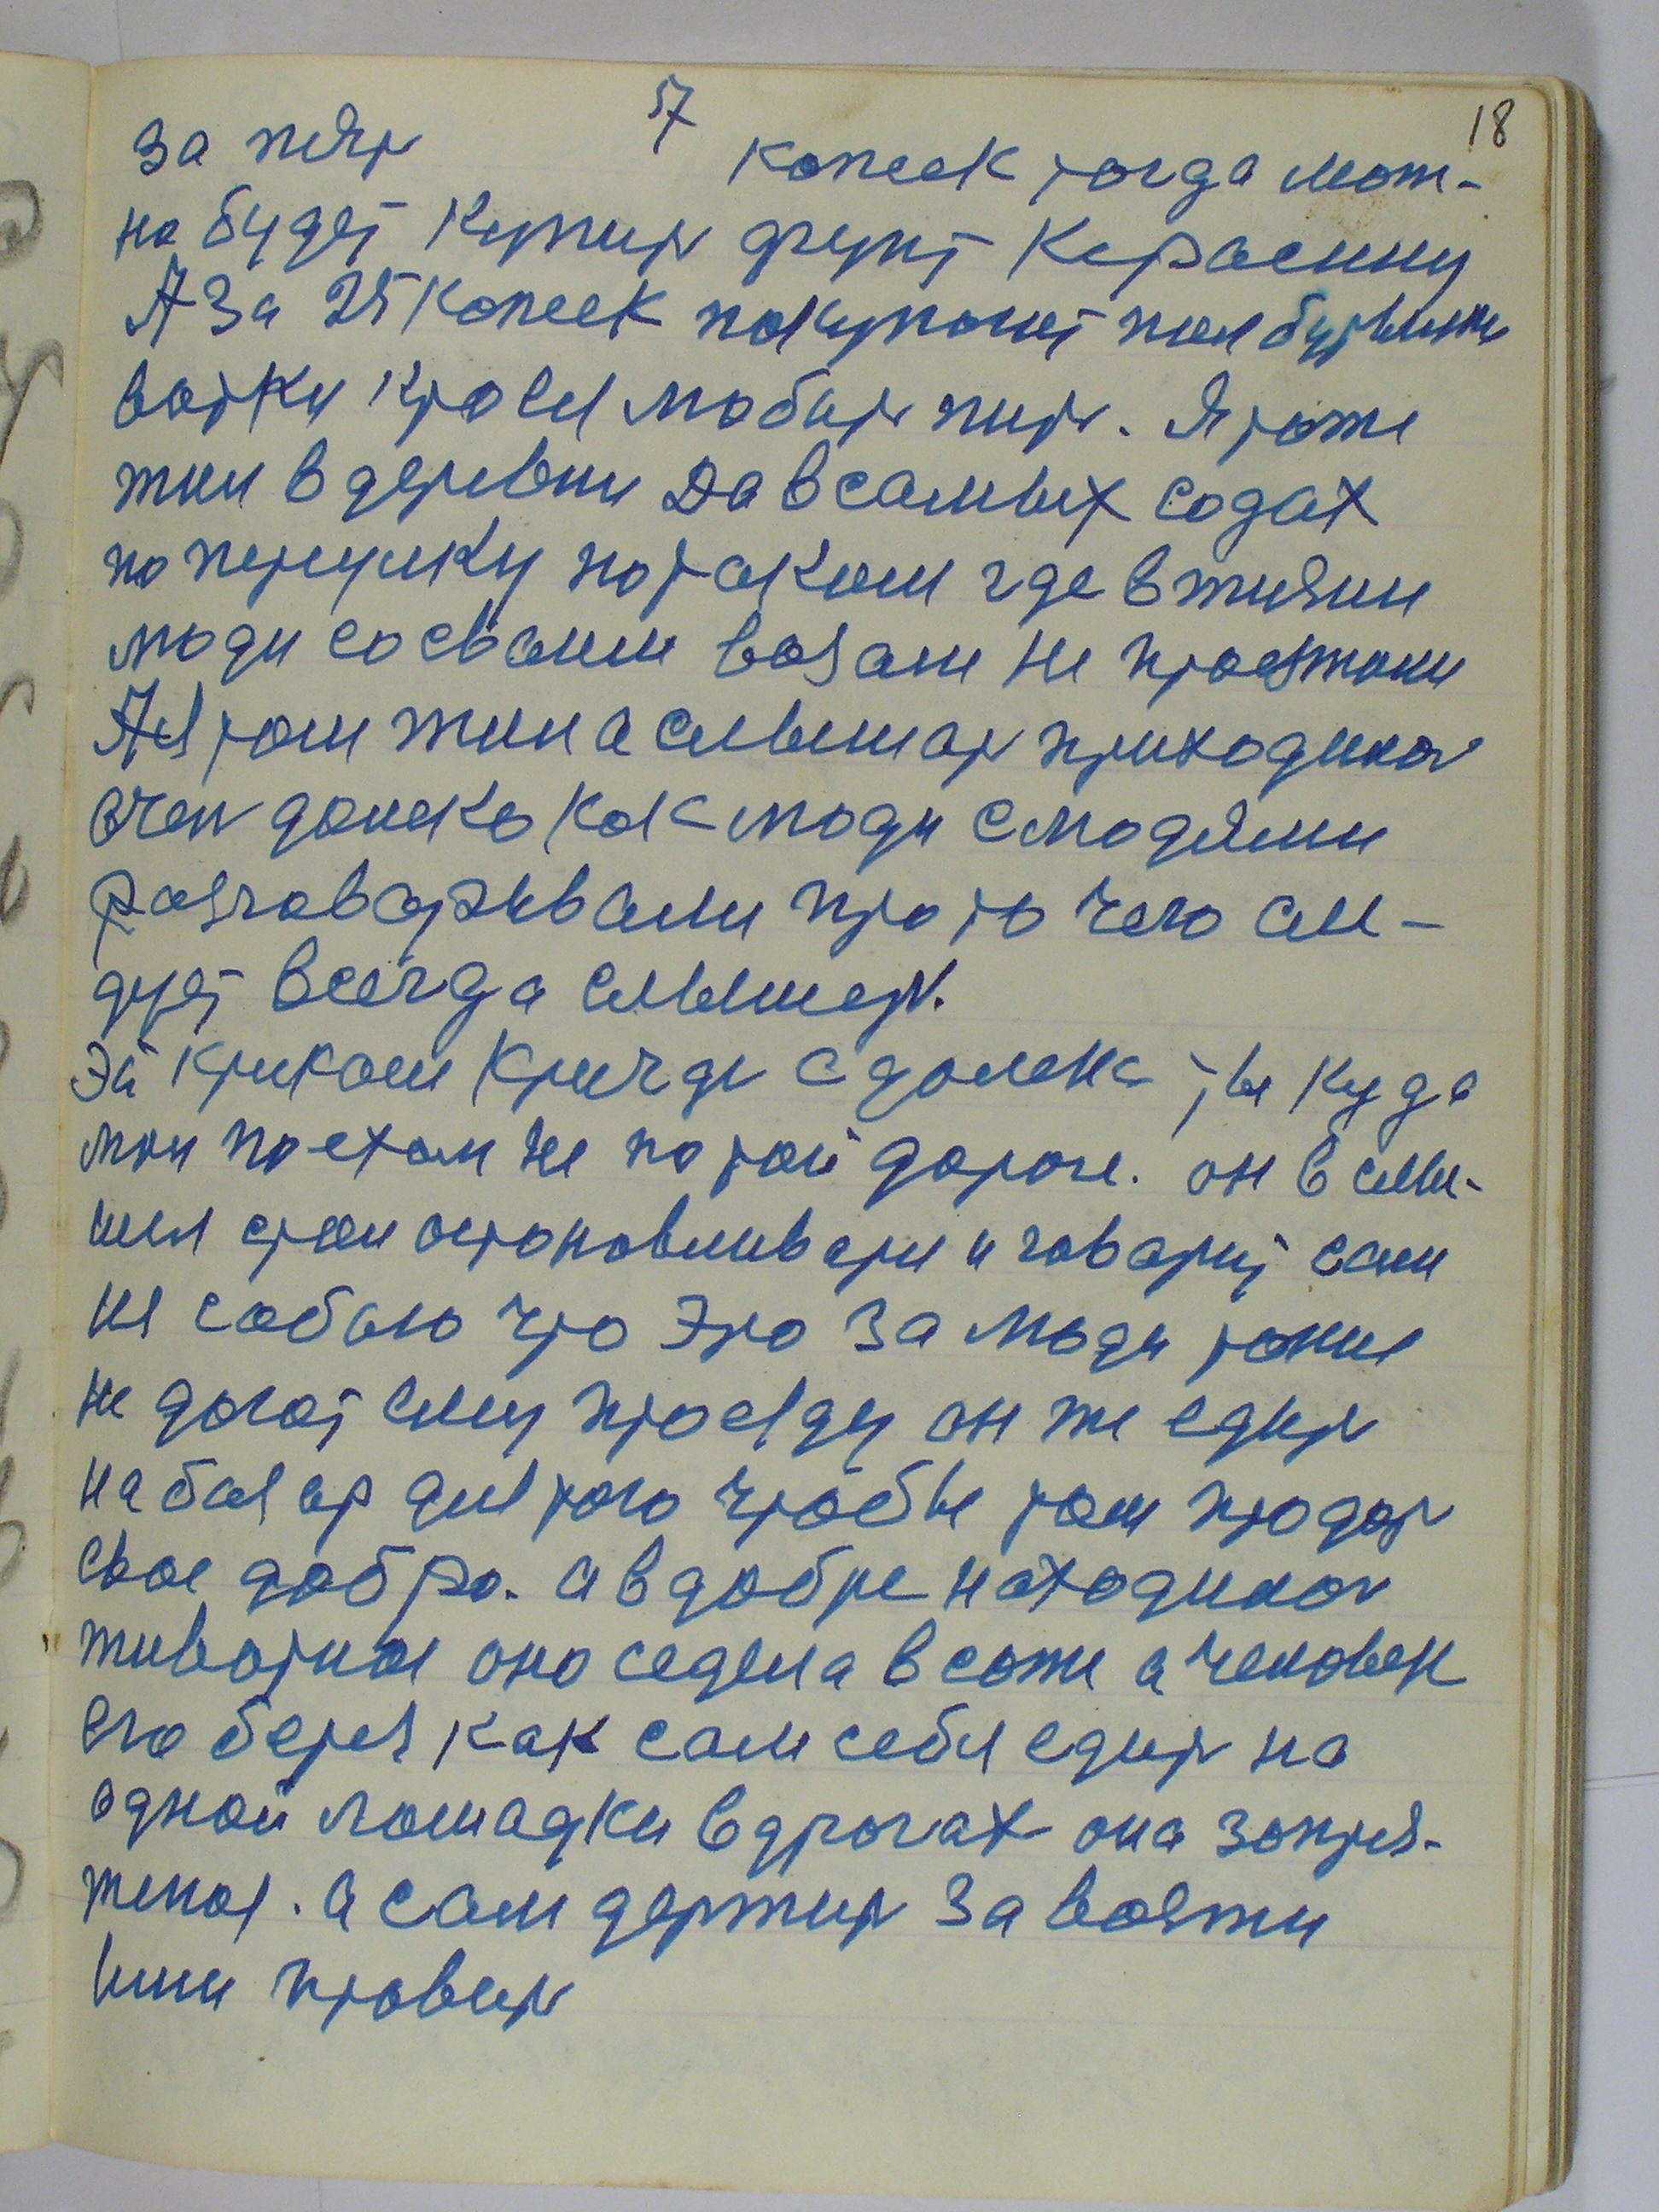 57
18
за пять копеек тогда мож-
но будет купить фунт керасину
А за 25 копеек покупают пол бутылки
вотки кто ей любить пить. Я тоже
жил в деревни да в самых садах
по переулку по таком где в жизни
люди со своими возами не проезжали
А я там жил а слышать приходилось
очен далеко как люди с людями
разговаривали про то чего сле-
дует всегда слышеть.
Эй криком кричать с далека ты куда
мол поехал не по той дороге. он в слы-
шел стал остановливати и говорит сам
ня собою что это за люди такие
не дают ему проезду он же едить
на базар для того чтобы там продать
свое добро. а в добре находилось
животное оно седела в саже а человек
его берег как сам себя едить на
одной лошадки в дрогах она запря-
женоя. а сам держить за возжи
ими править